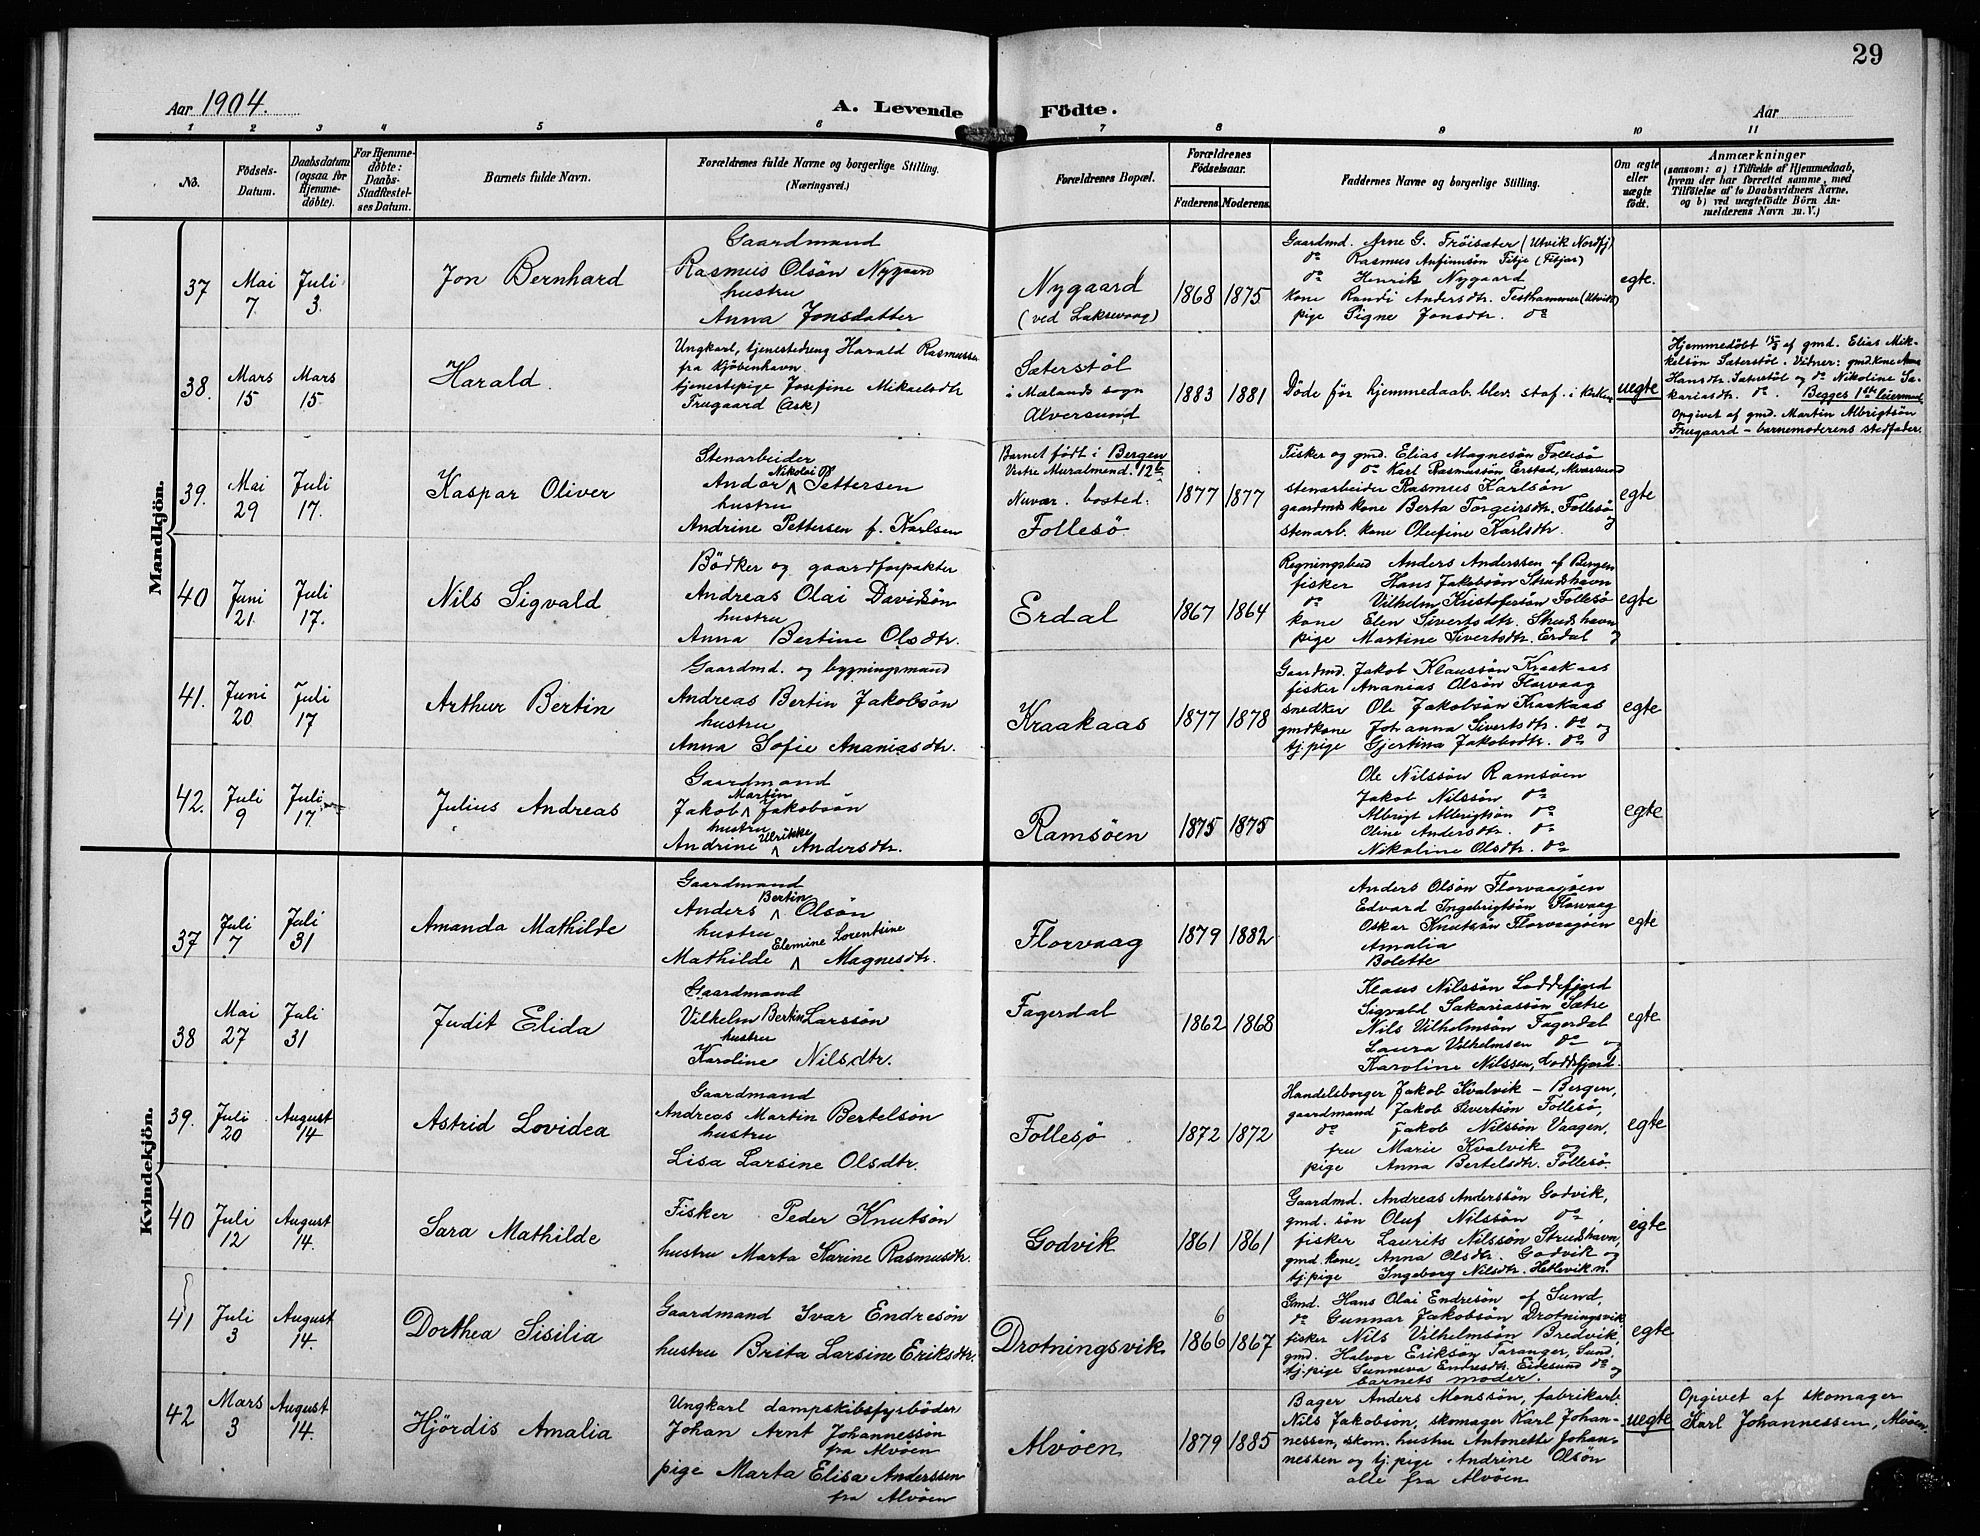 29
Aar 1904.
A. Levende Födte.
Aar
1 2 3 4 5 6 7 8 9 10 11
No.
Födsels-
Datum.
Daabsdatum
(ogsaa for
Hjemme-
döbte).
For Hjemme-
döbte:
Daabs-
Stadfæstel-
ses Datum.
Barnets fulde Navn.
Forældrenes fulde Navne og borgerlige Stilling.
(Næringsvei.)
Forældrenes Bopæl.
Forældrenes
Födselsaar.
Faderens. Moderens.
Faddernes Navne og borgerlige Stilling.
Om ægte
eller
uægte
födt.
Anmærkninger
(saasom: a) i Tilfælde af Hjemmedaab,
hvem der har forrettet samme, med
Tilföielse af to Daabsvidners Navne.
og b) ved uægtefödte Börn An-
melderens Navn m. V.)
Mandkjön.
37
Mai
7.
Juli
3.
Jon Bernhard
Gaardmand
Rasmus Olsön Nygaard
hustru
Anna Jonsdatter
Nygaard
(ved Laksevaag)
1868 1875
Gaardmd. Arne G. Tröisæter (Utvik Nordfj)
do Rasmus Anfinnsön Titje (Fitjar)
do Henrik Nygaard
kone Randi Andersdtr. Testhammer (Utvik)
pige Signe Jonsdtr. do
egte.
38.
Mars
15
Mars
15.
Harald.
Ungkarl, tjenestedreng Harald Rasmussen
fra Kjöbenhavn.
tjenestepige Josefine Mikaelsdtr
Frugaard (Ask)
Sæterstöl
i Mælands sogn
Alversund
1883 1881
Döde för hjemmedaab. blev staf. i kirken
uegte
Hjemmedöbt af gmd. Elias Mik-
kelsön Sæterstöl. Vidner: gmdkone Anna
Hansdtr. Sæterstöl og do Nikoline Sa-
kariasdtr. do. Begges 1ste leiermaal
Opgivet af gmd. Martin Albrigtsön
Frugaard – barnemoderens stedfader.
39.
Mai
29
Juli
17.
Kaspar Oliver
Stenarbeider
Andor Nikolai Pettersen
hustru
Andrine Pettersen f. Karlsen
Barnet födt i Bergen
Vestre Muralmend. 12b
Nuvær. bosted:
Follesö
1877 1877
Fisker og gmd. Elias Magnesön Follesö
do Karl Rasmussön Erstad, Alversund
stenarbeider Rasmus Karlsön
gaardmds kone Berta Torgeirsdtr. Follesö og
stenarb. kone Olufine Karlsdtr.
egte
40
Juni
21.
Juli
17.
Nils Sigvald
Bödker og gaardforpakter
Andreas Olai Davidsön
hustru
Anna Bertine Olsdtr.
Erdal
1867 1864
Regningsbud Anders Anderssen af Bergen
fisker Hans Jakobsön Strudshavn
do Vilhelm Kristofersön Follesö
kone Elen Sivertsdtr. Strudshavn
pige Martine Sivertsdtr. Erdal og
egte
41.
Juni
20
Juli
17
Arthur Bertin
Gaardmd. og bygningsmand
Andreas Bertin Jakobsön
hustru
Anna Sofie Ananiasdtr.
Kraakaas
1877 1878
Gaardmd. Jakob Klaussön Kraakaas
fisker Ananias Olsön Florvaag
snedker Ole Jakobsön Kraakaas
gmdkone Johanna Sivertsdtr. do og
tj.pige Gjertina Jakobsdtr. do
egte
42.
Juli
9
Juli
17.
Julius Andreas
Gaardmand
Jakob Martin Jakobsön
hustru
Andrine Ulrikke Andersdtr.
Ramsöen
1875 1875
Ole Nilssön Ramsöen
Jakob Nilssön do
Albrigt Albrigtsön do
Oline Andersdtr. do
Nikoline Olsdtr. do
egte
Kvindekjön.
37
Juli
7
Juli
31
Amanda Mathilde
Gaardmand
Anders Bertin Olsön
hustru
Mathilde Elemine Lorentsine Magnesdtr.
Florvaag
1879 1882
Anders Olsön Florvaagöen
Edvard Ingebrigtsön Florvaag
Oskar Knutsön Florvaagöen
Amalia
Bolette
egte
38
Mai
27
Juli
31
Judit Elida
Gaardmand
Vilhelm Bertin Larssön
hustru
Karoline Nilsdtr.
Fagerdal
1862 1868
Klaus Nilssön Loddefjord
Sigvald Sakariassön Sætre
Nils Vilhelmsön Fagerdal
Laura Vilhelmsen do og
Karoline Nilssen, Loddefjord.
egte
39.
Juli
20
August
14
Astrid Lovidea
Gaardmand
Andreas Martin Bertelsön
hustru
Lisa Larsine Olsdtr.
Follesö
1872 1872
Handelsborger Jakob Kvalvik – Bergen,
gaardmand Jakob Sivertsön Follesö,
do Jakob Nilssön Vaagen,
fru Marie Kvalvik og
pige Anna Bertelsdtr. Follesö.
egte
40
Juli
12
August
14.
Sara Mathilde
Fisker Peder Knutsön
hustru Marta Karine Rasmusdtr.
Godvik
1861 1861
Gaardmd. Andreas Anderssön Godvik,
gmd. sön Oluf Nilssön do,
fisker Laurits Nilssön Strudshavn,
gmd.kone, Anna Olsdtr. Godvik og
tj.pige Ingeborg Nilsdtr. Hetlevik n.
egte
41
Juli
3
August
14.
Dorthea Sisilia
Gaardmand Ivar Endresön
hustru Brita Larsine Eriksdtr.
Drotningsvik
6
1866 1867
Gmd. Hans Olai Endresön af Sund,
do Gunnar Jakobsön Drotningsvik
fisker Nils Vilhelmsön Bredvik,
gmd. Halvor Eriksön Taranger, Sund,
tj.pige Sunneva Endresdtr. Eidesund do og
barnets moder.
egte
42
Mars
3
August
14.
Hjördis Amalia
Ungkarl dampskibsfyrböder
Johan Arnt Johannessön
fra Alvöen
pige Marta Elisa Anderssen
fra Alvöen
Alvöen
1879 1885
Bager Anders Monssön, fabrikarb.
Nils Jakobson, skomager Karl Johan-
nessen, skom. hustru Antonette Johan-
nessen og tj.pige Andrine Olsön
alle fra Alvöen
uegte
Opgivet af skomager
Karl Johannessen, Alvöen.